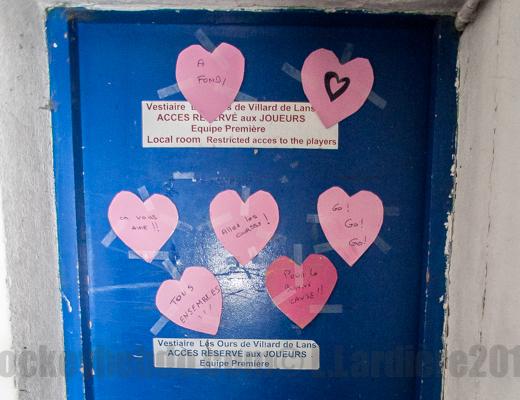 A
FOND!
Vestiaire Les Ours de Villard de Lans
ACCES RESERVÉ aux JOUEURS
Equipe Première
Local room Restricted acces to the players
ON VOUS
AIME !!
Allez les
OURSSS !
GO!
GO!
GO!
TOUS
ENSEMBLES
!!!
Pour la
bonne
cause !!
Vestiaire Lés Ours de Villard de Lans
ACCES RÉSERVÉ aux JOUEURS
Equipe Première